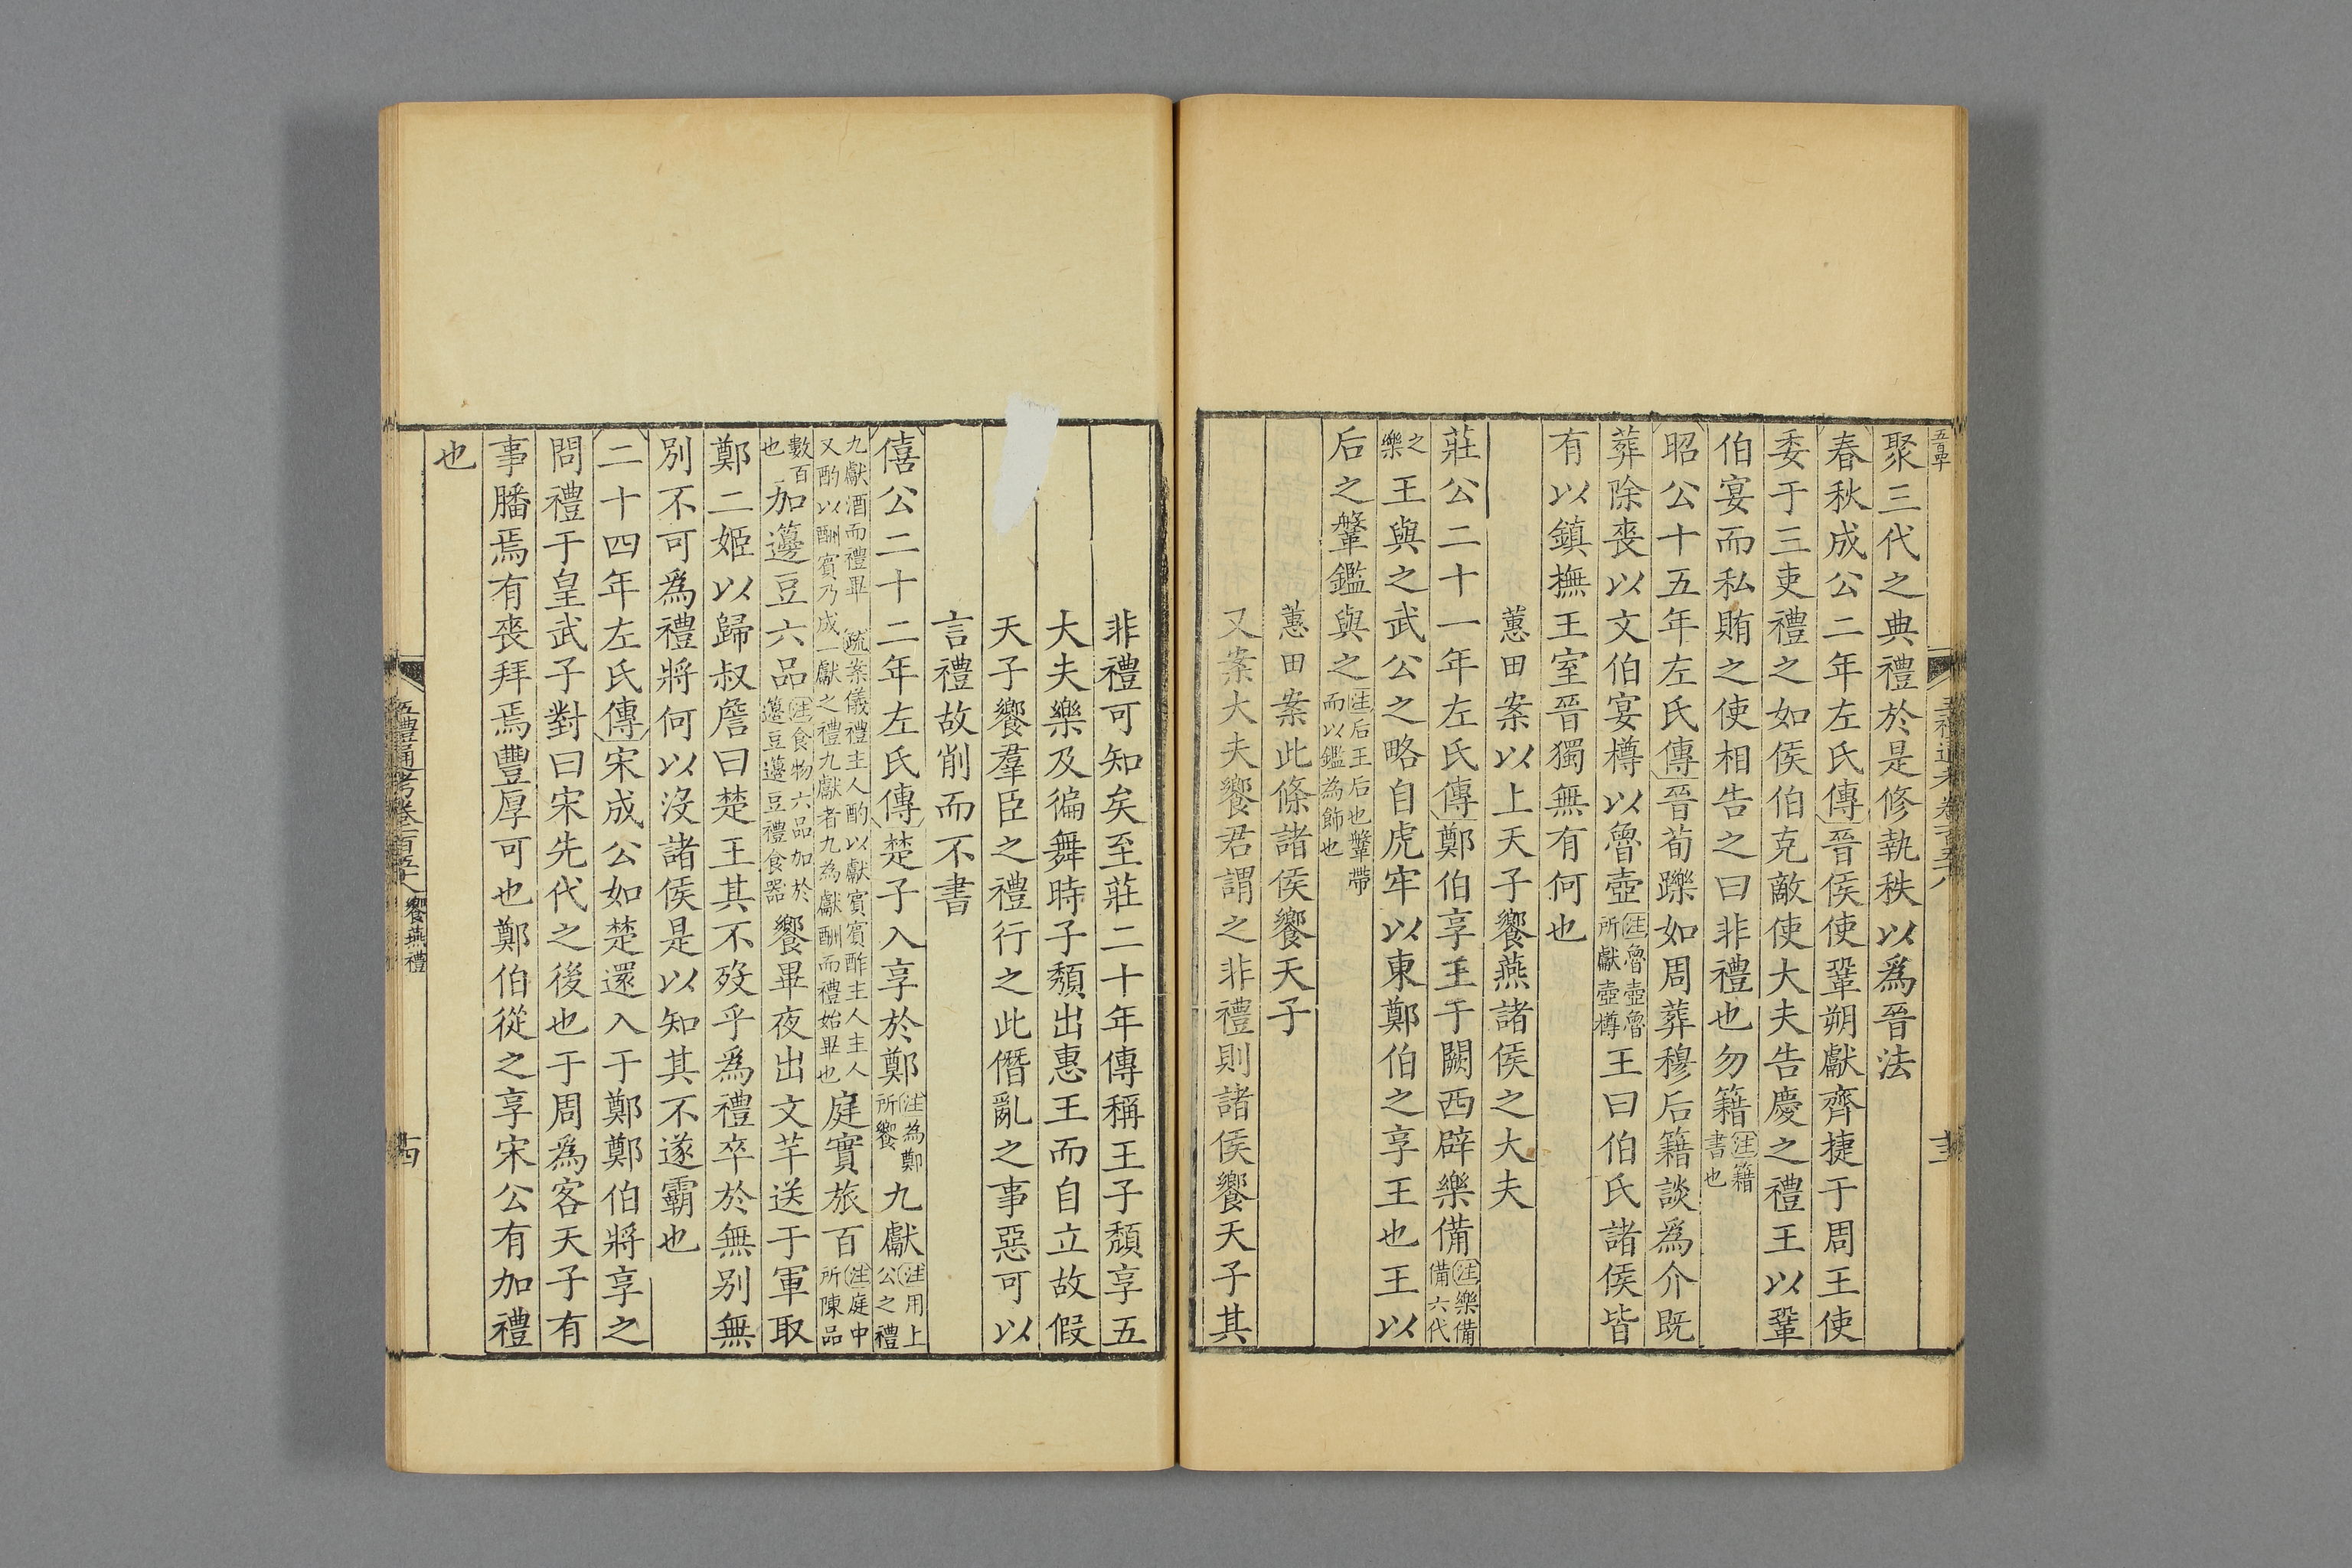 聚三代之典禮於是修執秩以爲晉法
春秋成公二年左氏傳晉侯使鞏朔獻齊捷于周王使
委于三吏禮之如侯伯克敵使大夫告慶之禮王以鞏
伯宴而私賄之使相告之曰非禮也勿籍注籍書也
昭公十五年左氏傳晉荀躒如周葬穆后籍談爲介既
葬除喪以文伯宴樽以魯壺注魯壺魯所獻壺樽王曰伯氏諸侯皆
有以鎮撫王室晉獨無有何也
蕙田案以上天子饗燕諸侯之大夫
莊公二十一年左氏傳鄭伯享王于闕西辟樂備注樂備備六代
之樂王與之武公之略自虎牢以東鄭伯之享王也王以
后之鞶鑑與之注后王后也鞶帶而以鑑為飾也
蕙田案此條諸侯饗天子
又案大夫饗君謂之非禮則諸侯饗天子其
非禮可知矣至莊二十年傳稱王子頹享五
大夫樂及徧舞時子頹出惠王而自立故假
天子饗羣臣之禮行之此僭亂之事惡可以
言禮故削而不書
僖公二十二年左氏傳楚子入享於鄭注為鄭所饗九獻注用上公之禮
九獻酒而禮畢 疏案儀禮主人酌以獻賓賓酢主人主人又酌以酬賓乃成一獻之禮九獻者九為獻酬而禮始畢也庭實旅百注庭中所陳品
數百也加籩豆六品注食物六品加於籩豆籩豆禮食器饗畢夜出文芈送于軍取
鄭二姬以歸叔詹曰楚王其不歿乎爲禮卒於無別無
別不可爲禮將何以沒諸侯是以知其不遂霸也
二十四年左氏傳宋成公如楚還入于鄭鄭伯將享之
問禮于皇武子對曰宋先代之後也于周爲客天子有
事膰焉有喪拜焉豐厚可也鄭伯從之享宋公有加禮
也
五禮通考卷一百五十八 饗燕禮
十四